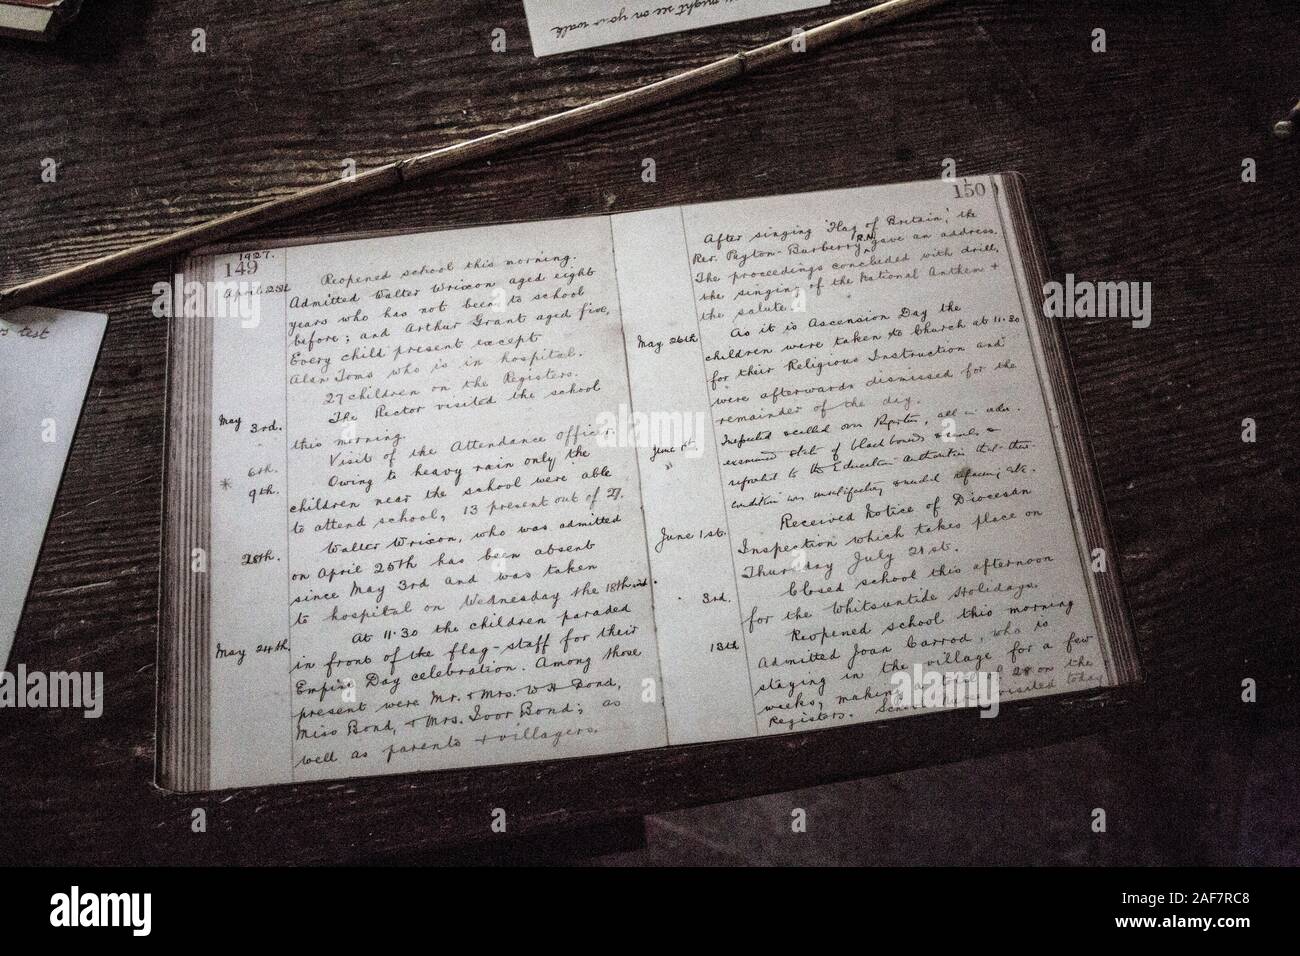 might see on your walk
s test
149
1927.
April 25th
Reopened school this morning.
Admitted Walter Wrixon aged eight
years who has not been to school
before; and Arthur Grant aged five,
Every child present except
Alan Toms who is in hospital.
27 children on the Registers.
May 3rd.
The Rector visited the school
this morning.
6th.
Visit of the Attendance Officer.
* 9th.
Owing to heavy rain only the
children near the school were able
to attend school, 13 present out of 27.
20th.
Walter Wrixon, who was admitted
on April 25th has been absent
since May 3rd and was taken
to hospital on Wednesday the 18th inst.
May 24th.
At 11.30 the children paraded
in front of the flag-staff for their
Empire Day celebration. Among those
present were Mr. & Mrs. W H Bond,
Miss Bond, & Mrs. Ivor Bond; as
well as parents & villagers.
150
After singing 'Flag of Britain', the
Rev. Peyton-Burberry R.N. gave an address.
The proceedings concluded with drill,
the singing of the National Anthem +
the salute.
May 26th
As it is Ascension Day the
children were taken to Church at 11.30
for their Religious Instruction and
were afterwards dismissed for the
remainder of the day.
June 1st.
Inspected & called over Registers, all in order.
examined state of blackboards &
reported to the Education Authorities that their
condition was unsatisfactory & needed refacing, etc.
June 1st.
Received Notice of Diocesan
Inspection which takes place on
Thursday July 21st.
3rd.
Closed school this afternoon
for the Whitsuntide Holidays.
13th
Reopened school this morning
Admitted Joan Carrod, who is
staying in the village for a few
weeks, making a total of 28 on the
Registers. School Nurse visited today
alamy
Image ID: 2AF7RC8
www.alamy.com